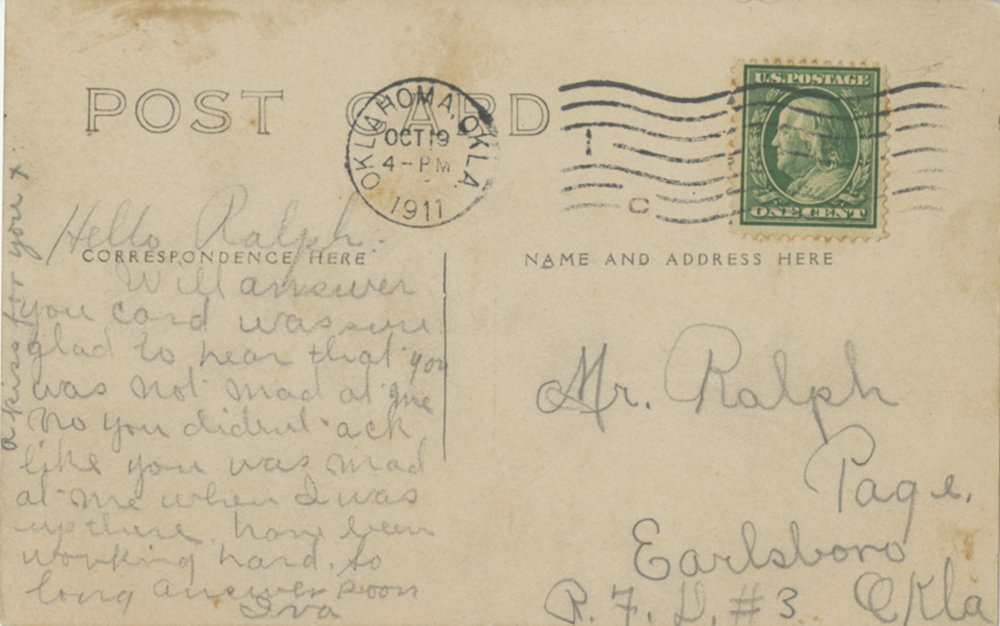 POST CARD
OKLAHOMA, OKLA.
OCT 19
4-PM
1911
U.S. POSTAGE
ONE CENT
C
CORRESPONDENCE HERE
NAME AND ADDRESS HERE
Hello Ralph.
Will answer
you card was sure
glad to hear that you
was not mad at me
No you dident ack
like you was mad
at me when I was
up there, have been
working hard. So
long answer soon
Iva
a kiss for you x
Mr. Ralph
Page.
Earlsboro
R. F. D. #3 Okla